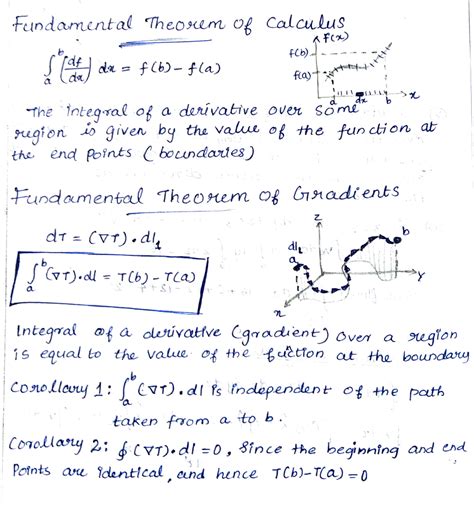 Fundamental Theorem of Calculus
∫ₐᵇ [df/dx] dx = f(b) - f(a)
F(x)
f(b)
f(a)
a dx b x
The integral of a derivative over some
region is given by the value of the function at
the end points (boundaries)
Fundamental Theorem of Gradients
dT = (∇T)·dl₁
∫ₐᵇ (∇T)·dl = T(b) - T(a)
z
b
dl₁
a
y
x
Integral of a derivative (gradient) over a region
is equal to the value of the fuction at the boundary
Corollary 1: ∫ₐᵇ (∇T)·dl is independent of the path
taken from a to b.
Corollary 2: ∮ (∇T)·dl = 0, Since the beginning and end
Points are identical, and hence T(b)-T(a) = 0